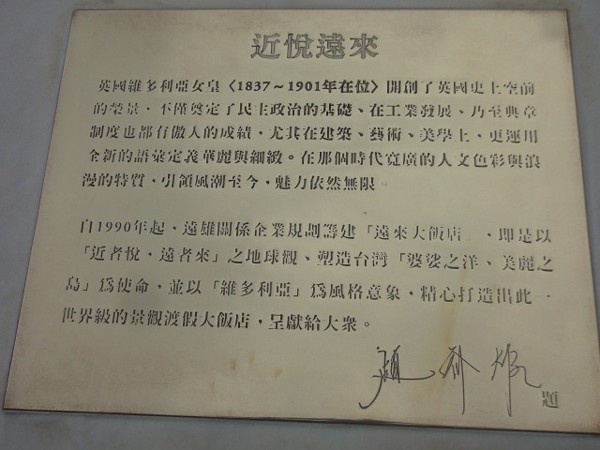 近悅遠來
英國維多利亞女皇〈1837～1901年在位〉開創了英國史上空前
的榮景，不僅奠定了民主政治的基礎、在工業發展、乃至典章
制度也都有傲人的成績，尤其在建築、藝術、美學上，更運用
全新的語彙定義華麗與細緻。在那個時代寬廣的人文色彩與浪
漫的特質，引領風潮至今，魅力依然無限。
自1990年起，遠雄關係企業規劃籌建「遠來大飯店」，即是以
「近者悅，遠者來」之地球觀、塑造台灣「婆娑之洋、美麗之
島」為使命，並以「維多利亞」為風格意象，精心打造出此一
世界級的景觀渡假大飯店，呈獻給大眾。
趙 雄 題